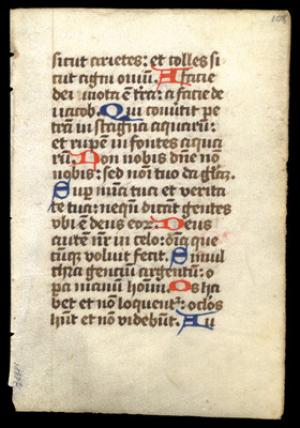 108
sicut arietes: et colles si
cut agni oviū. A facie
dei mota ē tr̄a: a facie de
i iacob. Qui cōvertit pe
trā in stagna aquarū:
et rupem in fontes aqua
rū. Non nobis dn̄e no
nobis: sed nōi tuo da gl̄az.
Sup m̄ia tua et verita
te tua: nequn̄ dicāt gentes
ubi ē deus eoꝝ. Deus
autē nr̄ in celo: oīa que
cūqꝫ voluit fecit. Simul
achra gentiū argentū: o
pa manuū hoīm. Os ha
bet et nō loquent᷑: oclos
hn̄t et nō videbūt. Au